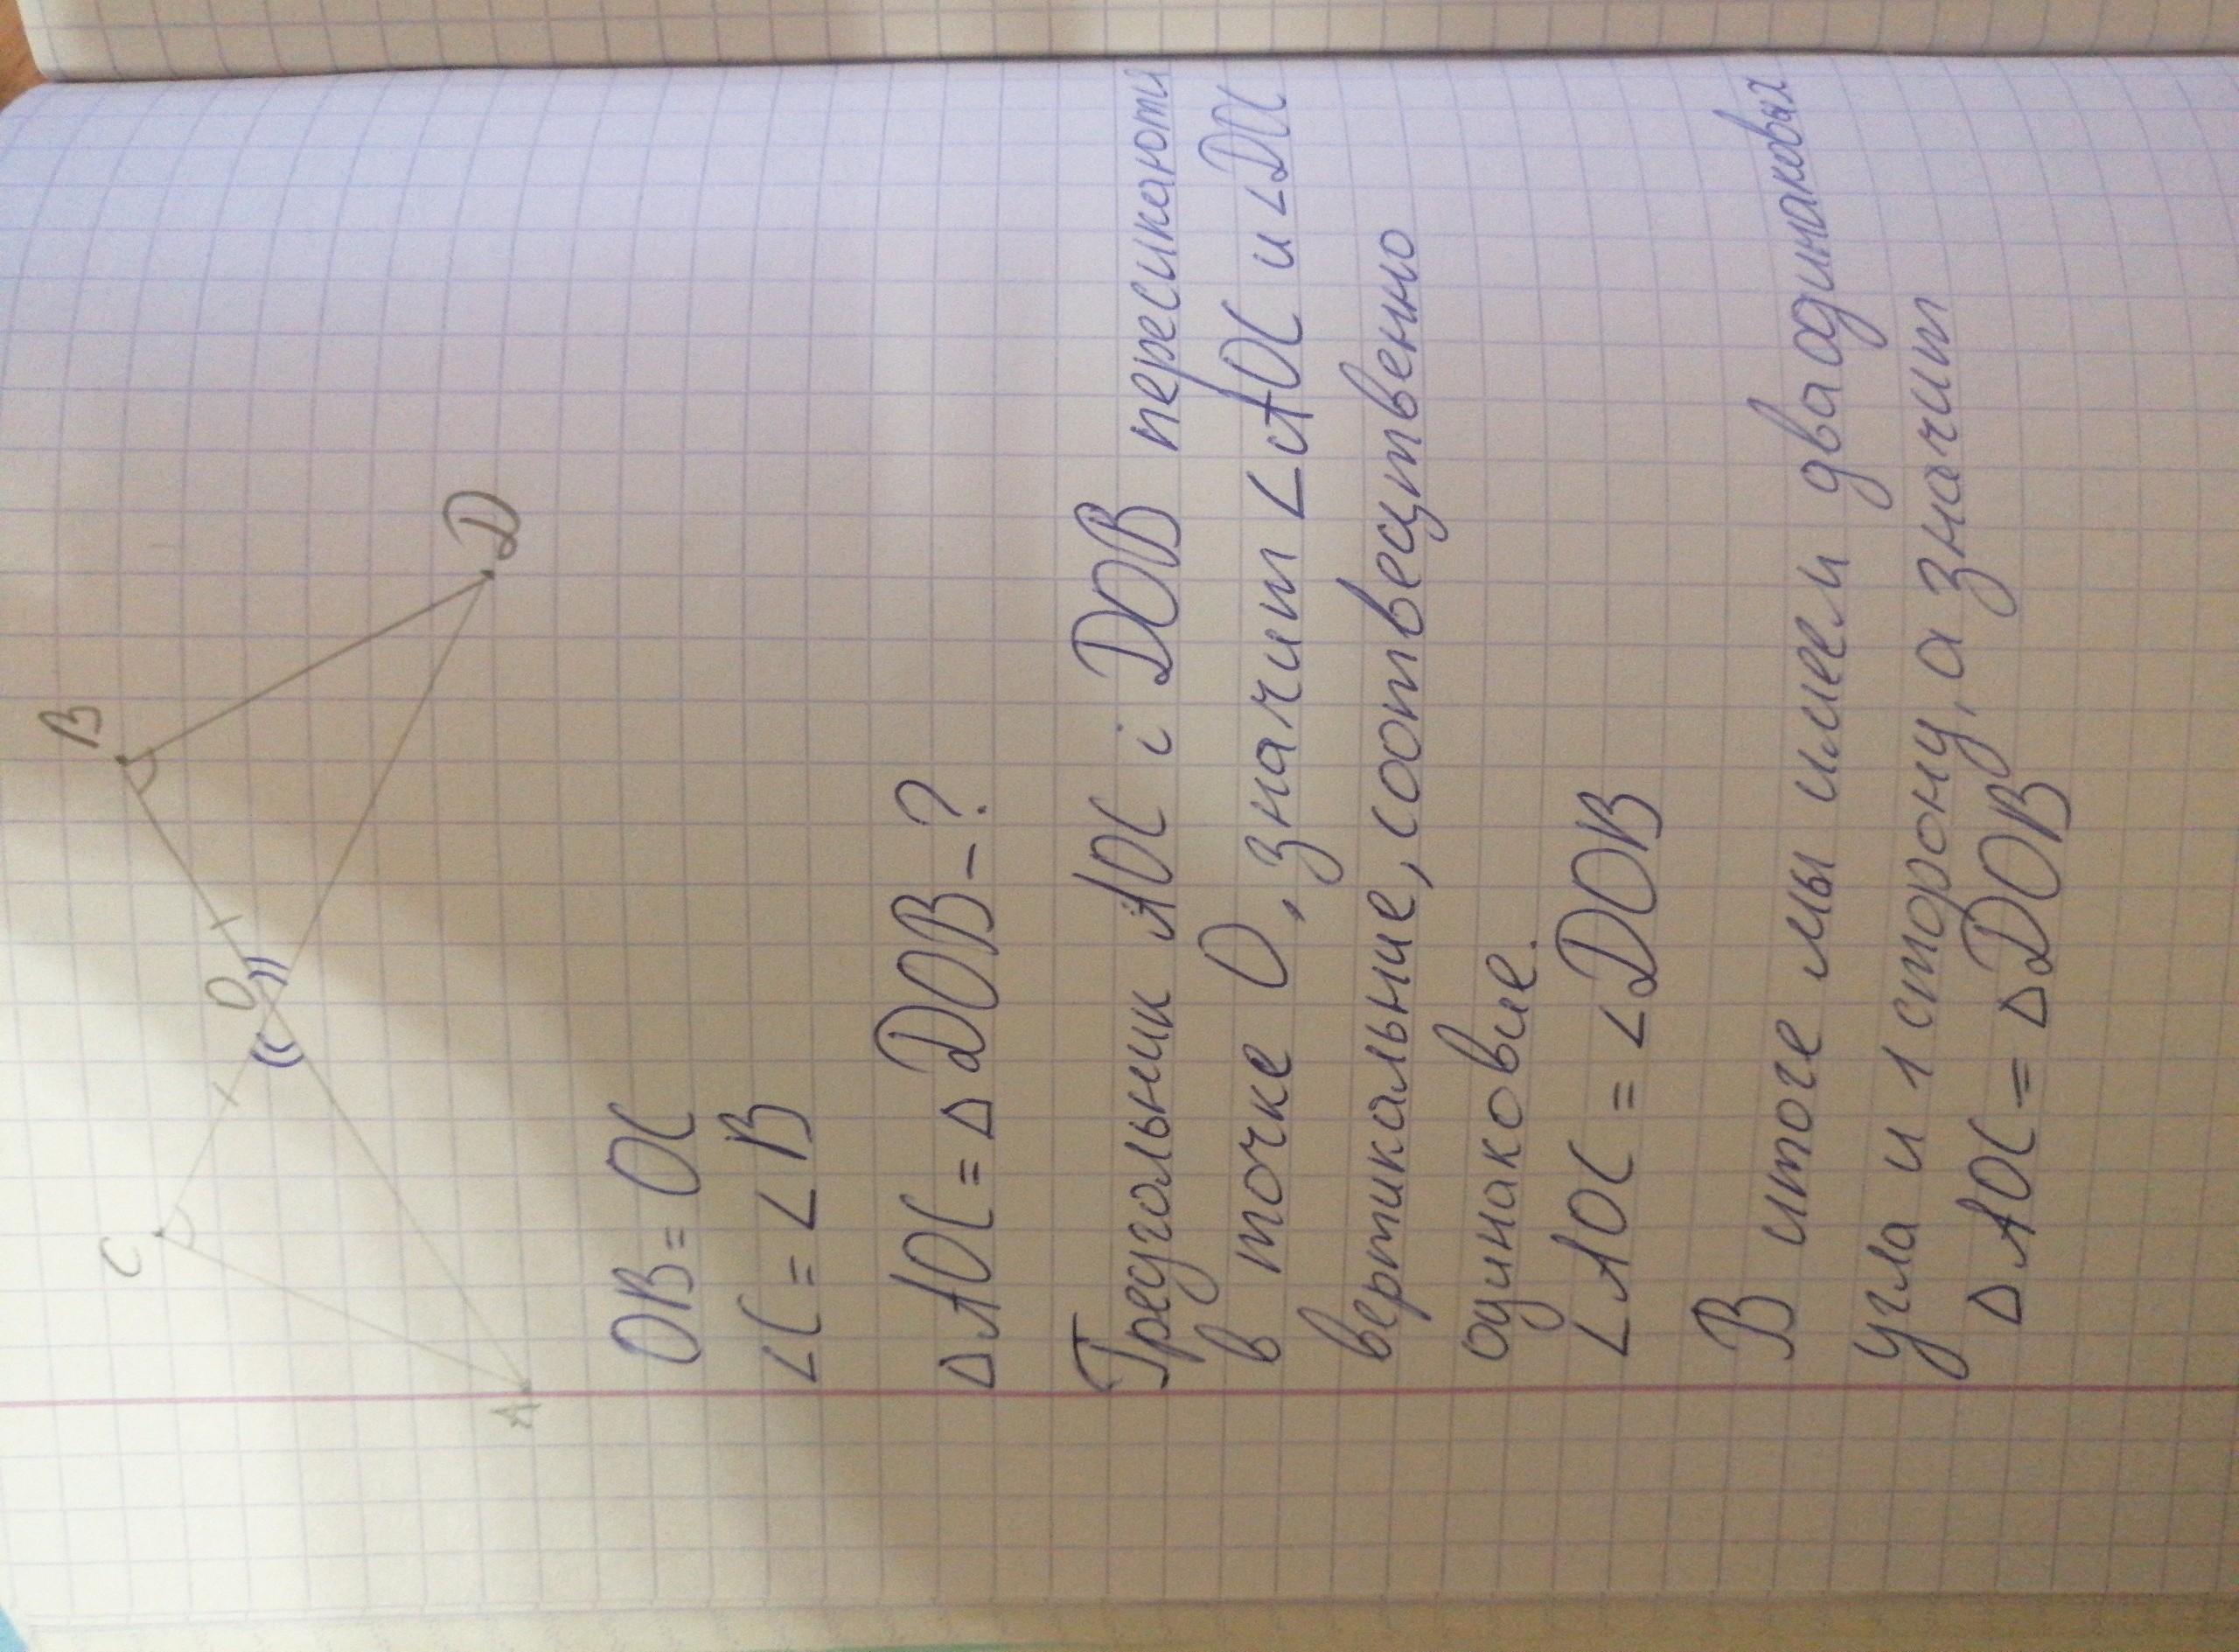 C
O
B
A
D
OB = OC
∠C = ∠B
△AOC = △DOB - ?
Треугольник AOC і DOB пересикають
в точке O, значит ∠AOC и ∠DOC
вертикальние, соотвецтвенно
одинаковие.
∠AOC = ∠DOB
В итоге мы имеем два одинаковых
угла и 1 сторону, а значит
△AOC = △DOB